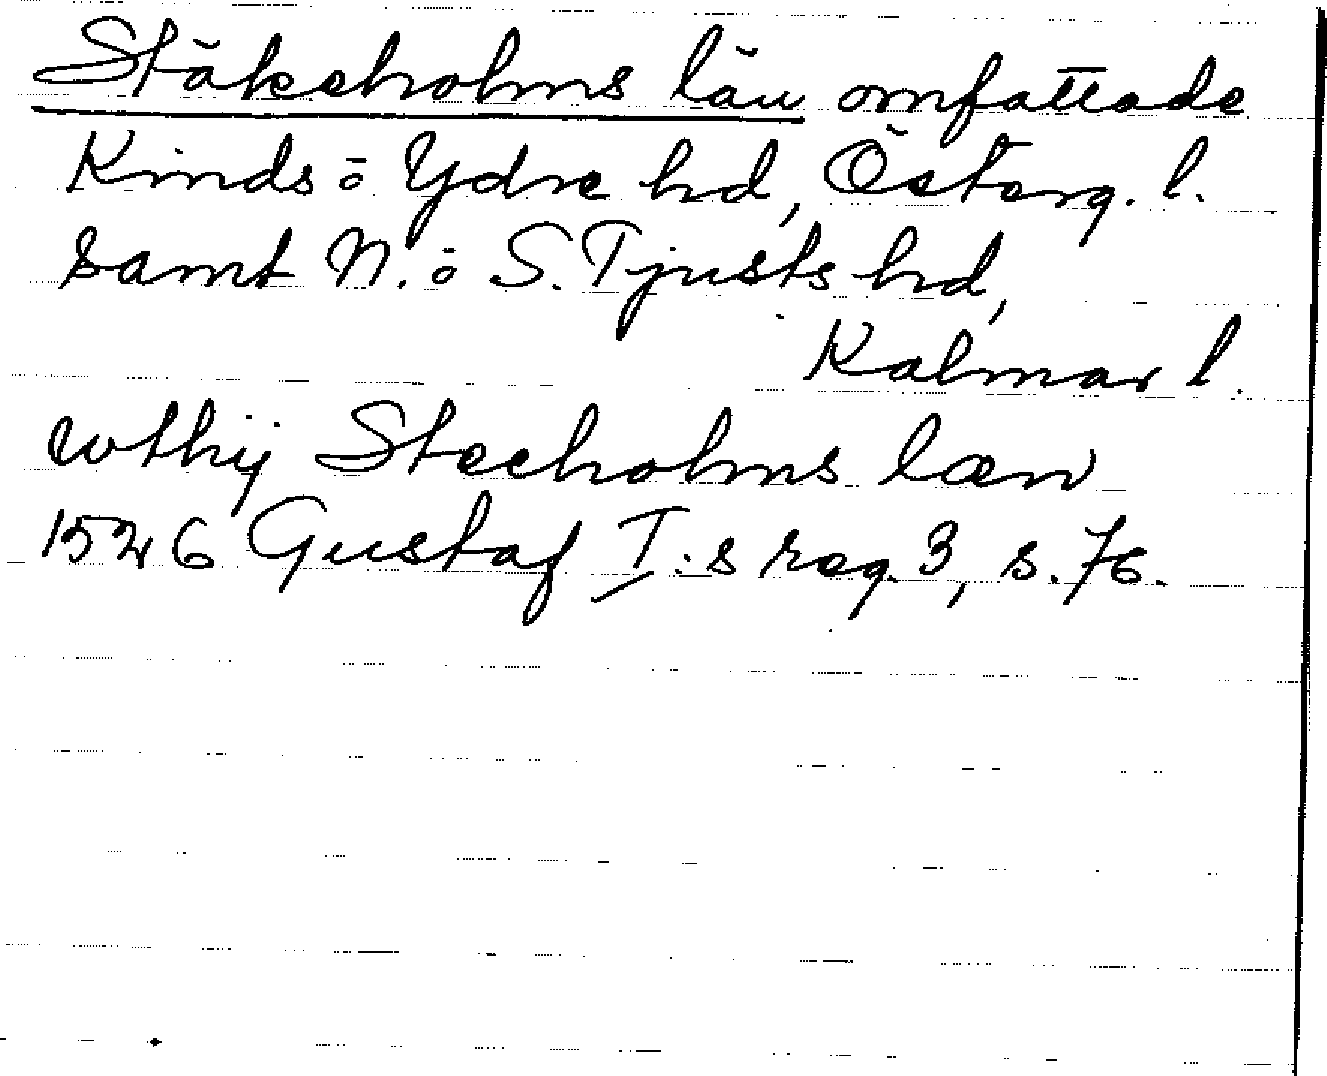 Stäkeholms län omfattade
Kinds ō Ydre hd, Österg. l.
samt N. ō S. Tjusts hd,
Kalmar l.
wthij Steeholms læn
1526 Gustaf I:s reg. 3, s. 76.